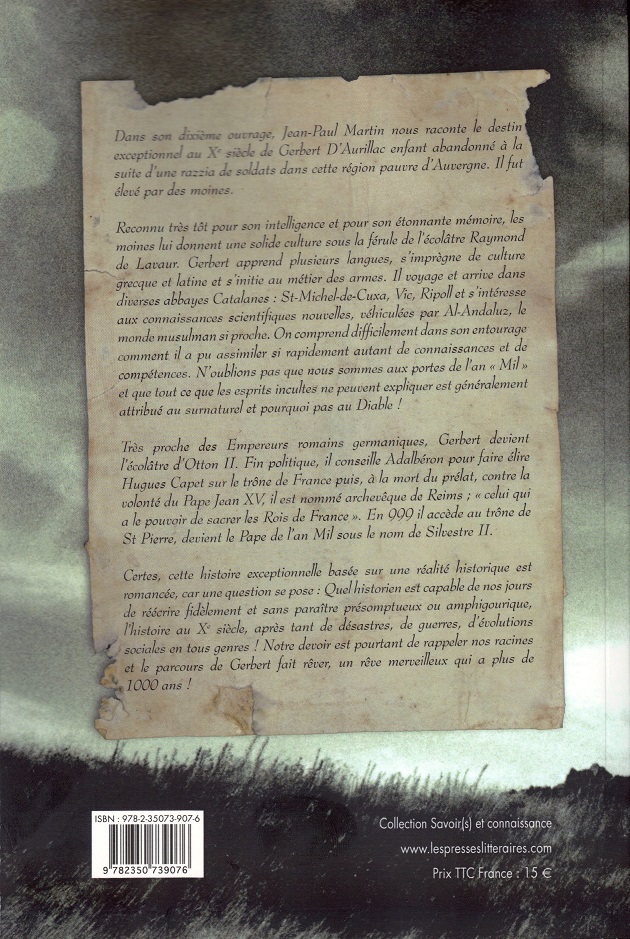 Dans son dixième ouvrage, Jean-Paul Martin nous raconte le destin
exceptionnel au Xe siècle de Gerbert D'Aurillac enfant abandonné à la
suite d'une razzia de soldats dans cette région pauvre d'Auvergne. Il fut
élevé par des moines.
Reconnu très tôt pour son intelligence et pour son étonnante mémoire, les
moines lui donnent une solide culture sous la férule de l'écolâtre Raymond
de Lavaur. Gerbert apprend plusieurs langues, s'imprègne de culture
grecque et latine et s'initie au métier des armes. Il voyage et arrive dans
diverses abbayes Catalanes : St-Michel-de-Cuxa, Vic, Ripoll et s'intéresse
aux connaissances scientifiques nouvelles, véhiculées par Al-Andaluz, le
monde musulman si proche. On comprend difficilement dans son entourage
comment il a pu assimiler si rapidement autant de connaissances et de
compétences. N'oublions pas que nous sommes aux portes de l'an « Mil »
et que tout ce que les esprits incultes ne peuvent expliquer est généralement
attribué au surnaturel et pourquoi pas au Diable !
Très proche des Empereurs romains germaniques, Gerbert devient
l'écolâtre d'Otton II. Fin politique, il conseille Adalbéron pour faire élire
Hugues Capet sur le trône de France puis, à la mort du prélat, contre la
volonté du Pape Jean XV, il est nommé archevêque de Reims ; « celui qui
a le pouvoir de sacrer les Rois de France ». En 999 il accède au trône de
St Pierre, devient le Pape de l'an Mil sous le nom de Silvestre II.
Certes, cette histoire exceptionnelle basée sur une réalité historique est
romancée, car une question se pose : Quel historien est capable de nos jours
de réécrire fidèlement et sans paraître présomptueux ou amphigourique,
l'histoire au Xe siècle, après tant de désastres, de guerres, d'évolutions
sociales en tous genres ! Notre devoir est pourtant de rappeler nos racines
et le parcours de Gerbert fait rêver, un rêve merveilleux qui a plus de
1000 ans !
ISBN : 978-2-35073-907-6
9 782350 739076
Collection Savoir(s) et connaissance
www.lespresseslitteraires.com
Prix TTC France : 15 €